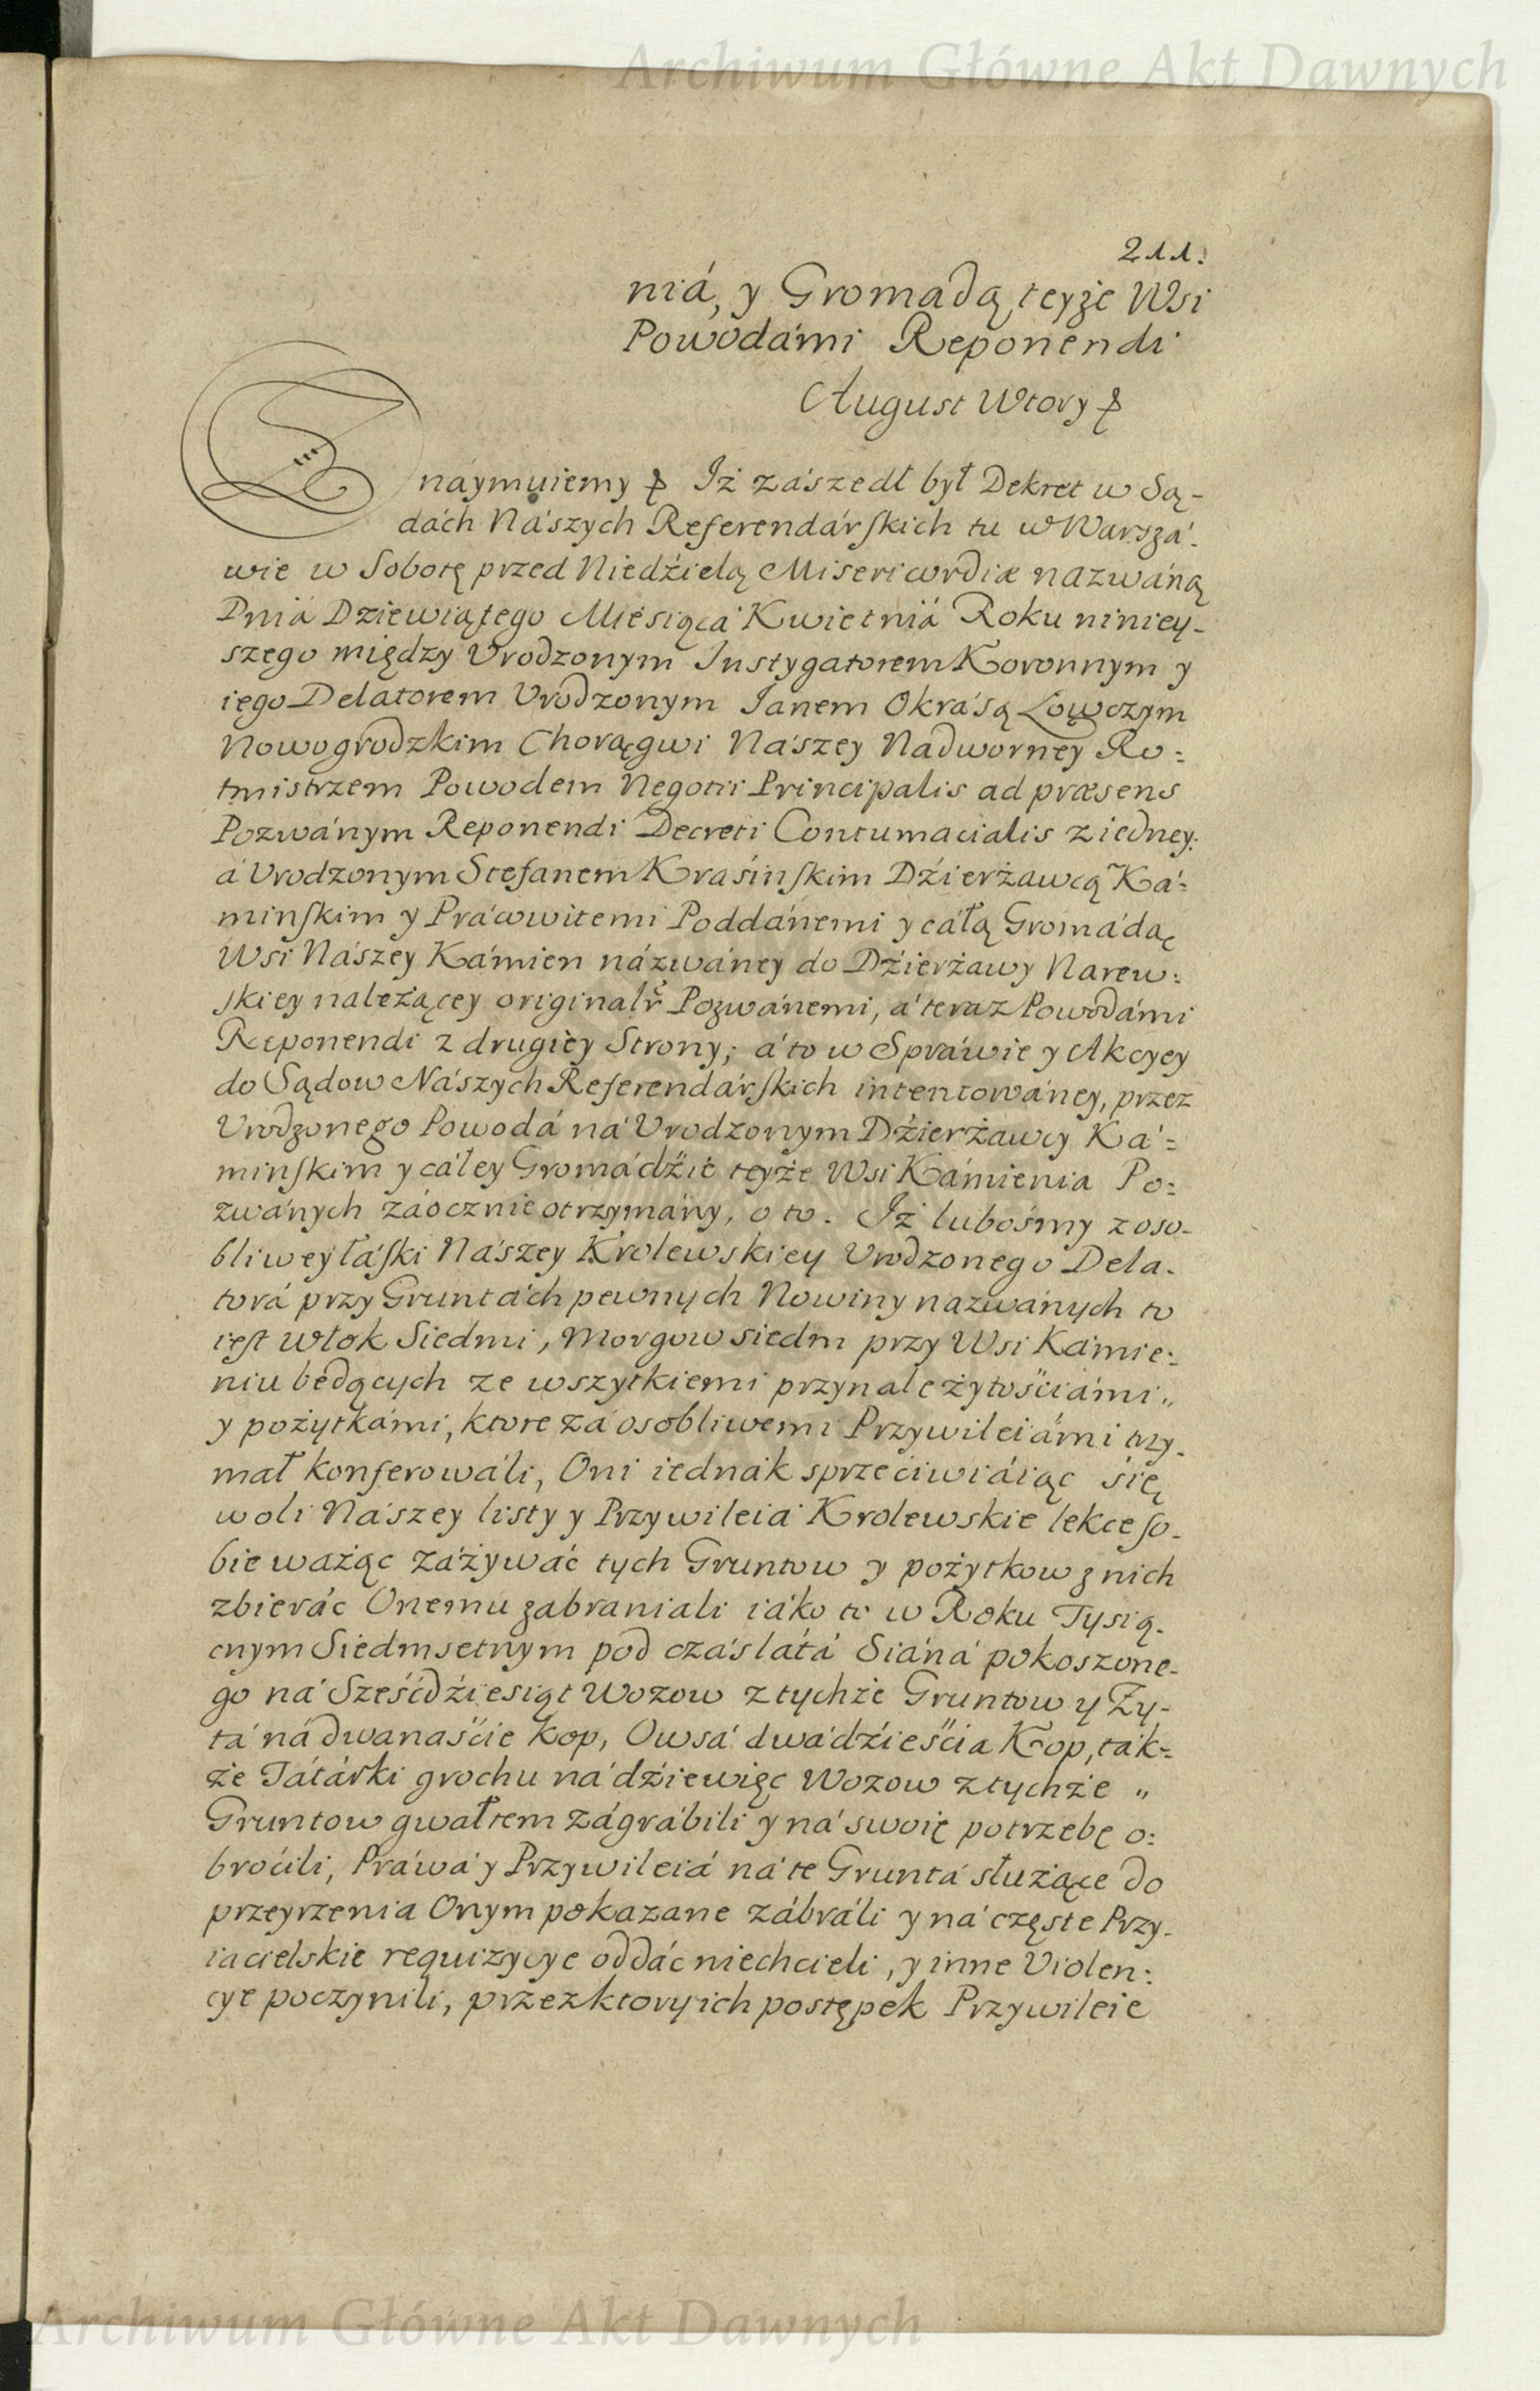 Archiwum Główne Akt Dawnych
211.
niá, y Gromadą teyże Wsi
Powodámi Reponendi
August Wtory
Znáymuiemy Iż zászedł był Dekret w Są-
dách Nászych Referendárskich tu w Warszá-
wie w Sobotę przed Niedźielą Misericordiæ nazwáną
Dniá Dziewiątego Miesiącá Kwietniá Roku niniey-
szego między Vrodzonym Instygatorem Koronnym y
iego Delatorem Vrodzonym Ianem Okrásą Łowczym
Nowogrodzkim Chorągwi Nászey Nadworney Ro-
tmistrzem Powodem Negotii Principalis ad præsens
Pozwánym Reponendi Decreti Contumacialis z iedney.
á Vrodzonym Stefanem Krasinskim Dźierżawcą Ká-
minskim y Prácowitemi Poddánemi y cáłą Gromádą
Wsi Nászey Kámien názwáney do Dźierżawy Narew-
skiey należącey originalr Pozwánemi, á teraz Powodámi
Reponendi z drugiey Strony; á to w Spráwie y Akcyey
do Sądow Nászych Referendárskich intentowáney, przez
Vrodzonego Powodá ná Vrodzonym Dźierżawcy Ká-
minskim y cáłey Gromádźie teyże Wsi Kámienia Po-
zwánych záocznie otrzymány, o to. Iż lubośmy z oso-
bliwey łáski Nászey Krolewskiey Vrodzonego Dela-
torá przy Gruntách pewnych Nowiny nazwánych to
iest włok Siedmi, Morgow siedm przy Wsi Kámie-
niu będących ze wszytkiemi przynależytośćiámi
y pożytkámi, ktore zá osobliwemi Przywileiámi trzy-
mał konferowáli, Oni iednák sprzećiwiáiąc się
woli Nászey listy y Przywileiá Krolewskie lekce so-
bie ważąc záżywáć tych Gruntow y pożytkow z nich
zbieráć Onemu zabraniali iáko to w Roku Tysią-
cnym Siedmsetnym pod czás látá Siáná pokoszone-
go ná Sześćdźiesiąt Wozow z tychże Gruntow y Ży-
tá ná dwanaśćie kop, Owsá dwádźieśćia Kop, ták-
że Tátárki grochu ná dźiewięc Wozow z tychże
Gruntow gwałtem zágrábili y ná swoię potrzebę o-
broćili, Práwá y Przywileiá ná te Gruntá służące do
przeyrzenia Onym pokazane zábráli y ná częste Przy-
iacielskie requizycye oddáć niechcieli, y inne Violen-
cye poczynili, przez ktory ich postępek Przywileie
Archiwum Główne Akt Dawnych